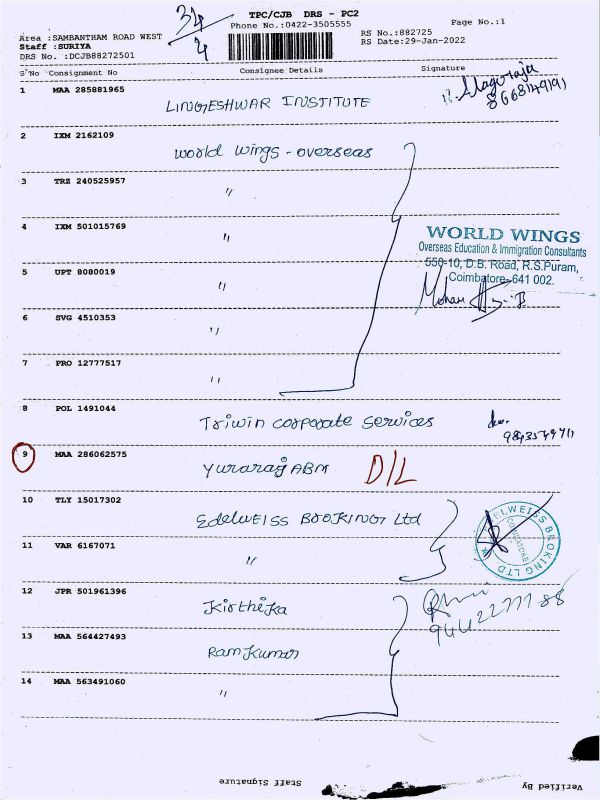 34/4
TPC/CJB DRS - PC2
Phone No.:0422-3505555
Page No.:1
Area :SAMBANTHAM ROAD WEST
RS No.:882725
Staff :SURIYA
RS Date:29-Jan-2022
DRS No. :DCJB88272501
S'No Consignment No Consignee Details Signature
1 MAA 285881965
LINGESHWAR INSTITUTE
8668149191
2 IXM 2162109
World Wings - overseas
3 TRZ 240525957
"
4 IXM 501015769
"
WORLD WINGS
Overseas Education & Immigration Consultants
550-10, D.B. Road, R.S.Puram,
Coimbatore-641 002.
5 UPT 8080019
"
Mohan
6 SVG 4510353
"
7 PRO 12777517
"
8 POL 1491044
Triwin corporate services
9 MAA 286062575
Yuvaraj ABM D/L
10 TLY 15017302
Edelweiss Booking Ltd
EDELWEISS BROKING LTD
COIMBATORE
11 VAR 6167071
"
12 JPR 501961396
Kirthika
13 MAA 564427493
Ram Kumar
14 MAA 563491060
"
Staff Signature
Verified By